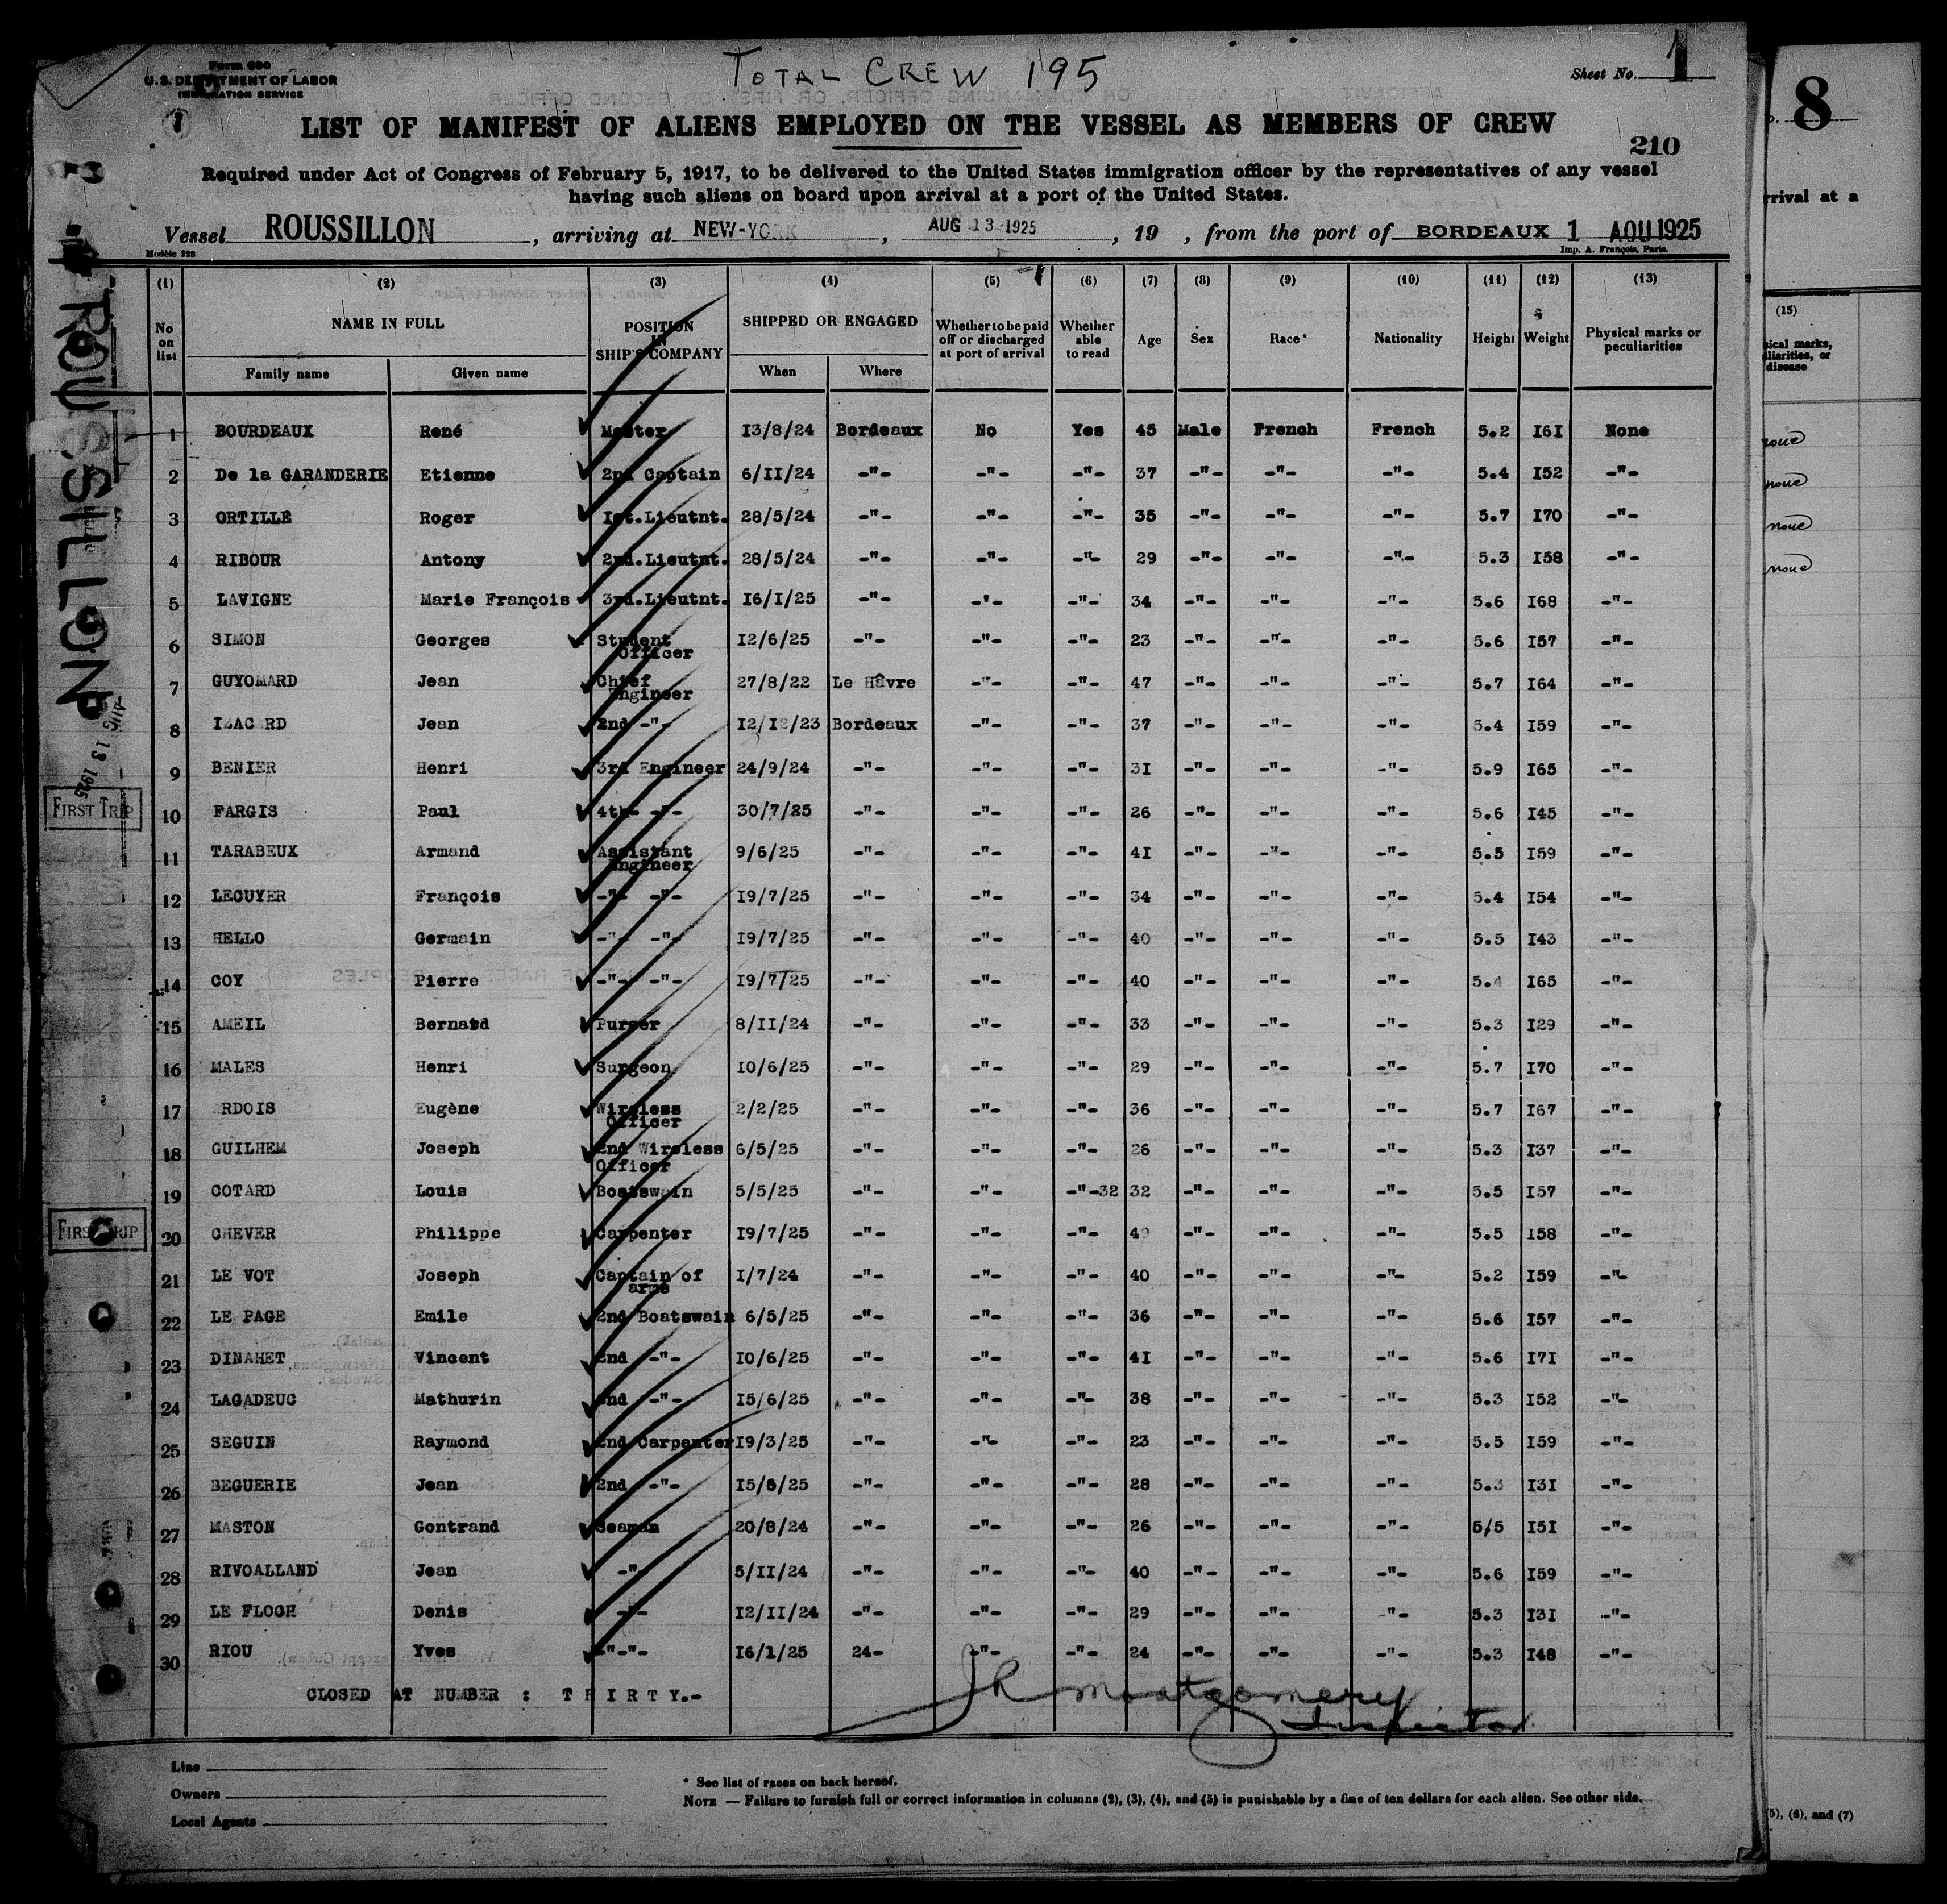 TOTAL CREW 195
Form 680
U. S. DEPARTMENT OF LABOR
IMMIGRATION SERVICE
Sheet No. 1
8
LIST OF MANIFEST OF ALIENS EMPLOYED ON THE VESSEL AS MEMBERS OF CREW
210
Required under Act of Congress of February 5, 1917, to be delivered to the United States immigration officer by the representatives of any vessel
having such aliens on board upon arrival at a port of the United States.
rrival at a
Vessel ROUSSILLON, arriving at NEW-YORK, AUG 13 1925, 19 , from the port of BORDEAUX 1 AOU 1925
Modèle 228
Imp. A. François, Paris.
(1) (2) (3) (4) (5) (6) (7) (8) (9) (10) (11) (12) (13)
No on list NAME IN FULL POSITION IN SHIP'S COMPANY SHIPPED OR ENGAGED Whether to be paid off or discharged at port of arrival Whether able to read Age Sex Race* Nationality Height Weight Physical marks or peculiarities
Family name Given name When Where
1 BOURDEAUX René Master 13/8/24 Bordeaux No Yes 45 Male French French 5.2 I6I None
2 De la GARANDERIE Etienne 2nd Captain 6/II/24 -"- -"- -"- 37 -"- -"- -"- 5.4 I52 -"-
3 ORTILLE Roger Ist.Lieutnt. 28/5/24 -"- -"- -"- 35 -"- -"- -"- 5.7 I70 -"-
4 RIBOUR Antony 2nd.Lieutnt. 28/5/24 -"- -"- -"- 29 -"- -"- -"- 5.3 I58 -"-
5 LAVIGNE Marie François 3rd.Lieutnt. I6/I/25 -"- -"- -"- 34 -"- -"- -"- 5.6 I68 -"-
6 SIMON Georges Student Officer I2/6/25 -"- -"- -"- 23 -"- -"- -"- 5.6 I57 -"-
7 GUYOMARD Jean Chief Engineer 27/8/22 Le Hâvre -"- -"- 47 -"- -"- -"- 5.7 I64 -"-
8 Jean 2nd -"- I2/I2/23 Bordeaux -"- -"- 37 -"- -"- -"- 5.4 I59 -"-
9 BENIER Henri 3rd Engineer 24/9/24 -"- -"- -"- 3I -"- -"- -"- 5.9 I65 -"-
10 FARGIS Paul 4th- -"- 30/7/25 -"- -"- -"- 26 -"- -"- -"- 5.6 I45 -"-
11 TARABEUX Armand Assistant Engineer 9/6/25 -"- -"- -"- 4I -"- -"- -"- 5.5 I59 -"-
12 LECUYER François -"- -"- I9/7/25 -"- -"- -"- 34 -"- -"- -"- 5.4 I54 -"-
13 HELLO Germain -"- -"- I9/7/25 -"- -"- -"- 40 -"- -"- -"- 5.5 I43 -"-
14 COY Pierre -"- -"- I9/7/25 -"- -"- -"- 40 -"- -"- -"- 5.4 I65 -"-
15 AMEIL Bernard Purser 8/II/24 -"- -"- -"- 33 -"- -"- -"- 5.3 I29 -"-
16 MALES Henri Surgeon I0/6/25 -"- -"- -"- 29 -"- -"- -"- 5.7 I70 -"-
17 ARDOIS Eugène Wireless Officer 2/2/25 -"- -"- -"- 36 -"- -"- -"- 5.7 I67 -"-
18 GUILHEM Joseph 2nd Wireless Officer 6/5/25 -"- -"- -"- 26 -"- -"- -"- 5.3 I37 -"-
19 COTARD Louis Boatswain 5/5/25 -"- -"- -"-32 32 -"- -"- -"- 5.5 I57 -"-
20 CHEVER Philippe Carpenter I9/7/25 -"- -"- -"- -"- -"- -"- 5.5 I58 -"-
21 LE VOT Joseph Captain of arms I/7/24 -"- -"- -"- 40 -"- -"- -"- 5.2 I59 -"-
22 LE PAGE Emile 2nd Boatswain 6/5/25 -"- -"- -"- 36 -"- -"- -"- 5.6 I57 -"-
23 DINAHET Vincent 2nd -"- I0/6/25 -"- -"- -"- 4I -"- -"- -"- 5.6 I7I -"-
24 LAGADEUC Mathurin 2nd -"- I5/6/25 -"- -"- -"- 38 -"- -"- -"- 5.3 I52 -"-
25 SEGUIN Raymond 2nd Carpenter I9/3/25 -"- -"- -"- 23 -"- -"- -"- 5.5 I59 -"-
26 BEGUERIE Jean 2nd -"- I5/6/25 -"- -"- -"- 28 -"- -"- -"- 5.3 I3I -"-
27 MASTON Gontrand Seaman 20/8/24 -"- -"- -"- 26 -"- -"- -"- 5/5 I5I -"-
28 RIVOALLAND Jean -"- 5/II/24 -"- -"- -"- 40 -"- -"- -"- 5.6 I59 -"-
29 LE FLOCH Denis -"- I2/II/24 -"- -"- -"- 29 -"- -"- -"- 5.3 I3I -"-
30 RIOU Yves -"-"- I6/1/25 24- -"- -"- 24 -"- -"- -"- 5.3 I48 -"-
CLOSED AT NUMBER : THIRTY.-
JR Montgomery
Inspector
Line
Owners
Local Agents
* See list of races on back hereof.
NOTE — Failure to furnish full or correct information in columns (2), (3), (4), and (5) is punishable by a fine of ten dollars for each alien. See other side.
ROUSSILLON
AUG 13 1925
FIRST TRIP
FIRST TRIP
(15)
sical marks,
uliarities, or
disease
none
none
none
none
(5), (6), and (7)